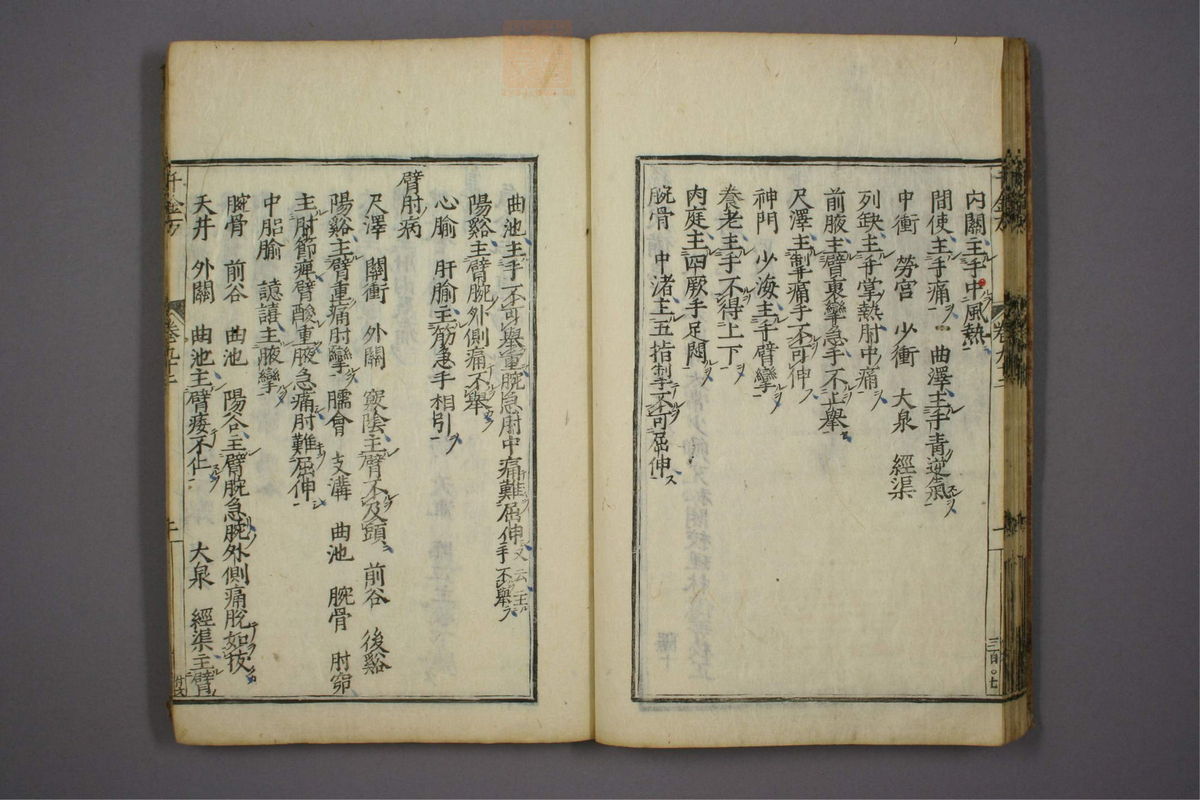 内關主手中風熱
間使主手痛 曲澤主手青逆氣
中衝 勞宮 少衝 大泉 經渠
列缺主手掌熱肘中痛
前腋主臂裏攣急手不上舉
尺澤主掣痛手不可伸
神門 少海主手臂攣
養老主手不得上下
內庭主四厥手足悶
腕骨 中渚主五指掣不可屈伸
曲池主手不可舉重腕急肘中痛難屈伸 又云主手不舉
陽谿主臂腕外側痛不舉
心腧 肝腧主筋急手相引
臂肘病
尺澤 關衝 外關 竅陰主臂不及頭 前谷 後谿
陽谿主臂重痛肘攣 臑會 支溝 曲池 腕骨 肘窌
主肘節痺臂酸重腋急痛肘難屈伸
中膂腧 譩譆主腋攣
腕骨 前谷 曲池 陽谷主臂腕急腕外側痛脫如拔
天井 外關 曲池主臂痿不仁 大泉 經渠主臂
千金方 卷九十二
三百〇七